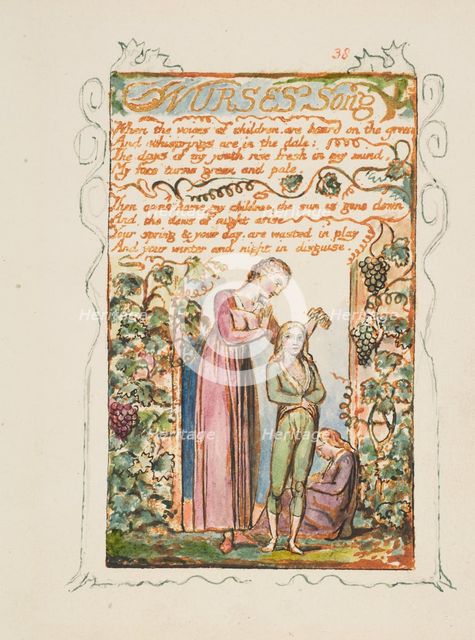 38
NURSES Song
When the voices of children. are heard on the green
And whisprings are in the dale:
The days of my youth rise fresh in my mind,
My face turns green and pale.
Then come home my children, the sun is gone down
And the dews of night arise
Your spring & your day. are wasted in play
And your winter and night in disguise.
Heritage
Heritage
Heritage
Heritage
Heritage
Heritage